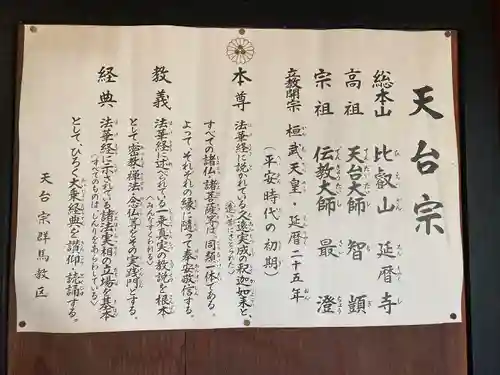 天台宗
総本山 比叡山 延暦寺
高祖 天台大師 智顗
宗祖 伝教大師 最澄
立教開宗 桓武天皇・延暦二十五年
(平安時代の初期)
本尊 法華経に説かれている久遠実成の釈迦如来と、
すべての諸仏諸菩薩等は、同類一体である。
よって、それぞれの縁に随って奉安敬信する。
教義 法華経に述べられている一乗真実の教説を根本
として密教、禅法、念仏等をその実践門とする。
経典 法華経に示されている諸法実相の立場を基本
として、ひろく大乗経典を讃仰、読誦する。
天台宗群馬教区